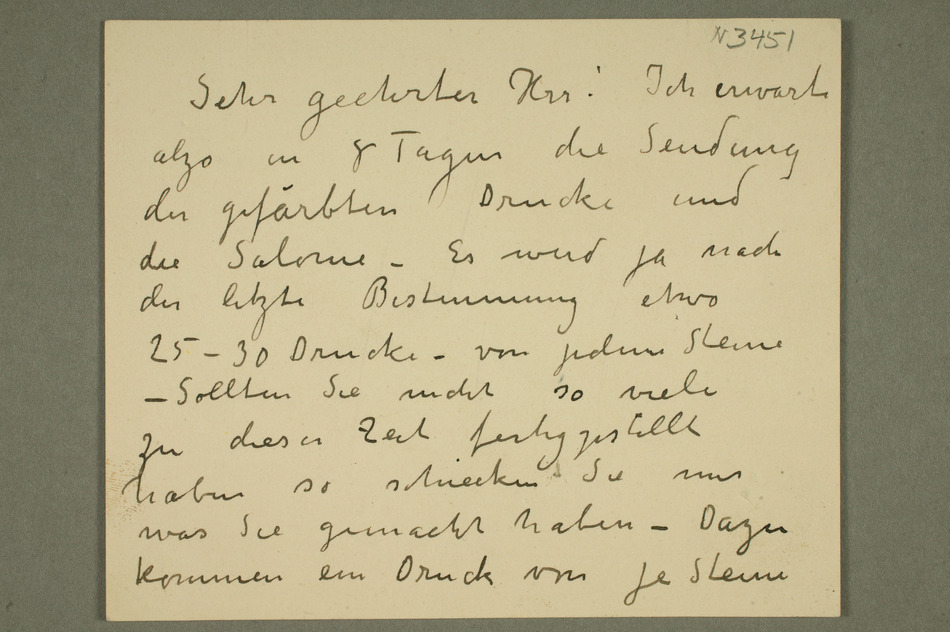 N3451
Sehr geehrter Herr! Ich erwarte
also in 8 Tagen die Sendung
der gefärbten Drucke und
die Salome – Es wird ja nach
der letzte Bestemmung etwo
25–30 Drucke – von jedem Steine
– Sollten Sie nicht so viele
zu dieser Zeit fertiggestellt
haben so schiecken Sie mir
was Sie gemacht haben – Dazu
kommen ein Druck von je Steine